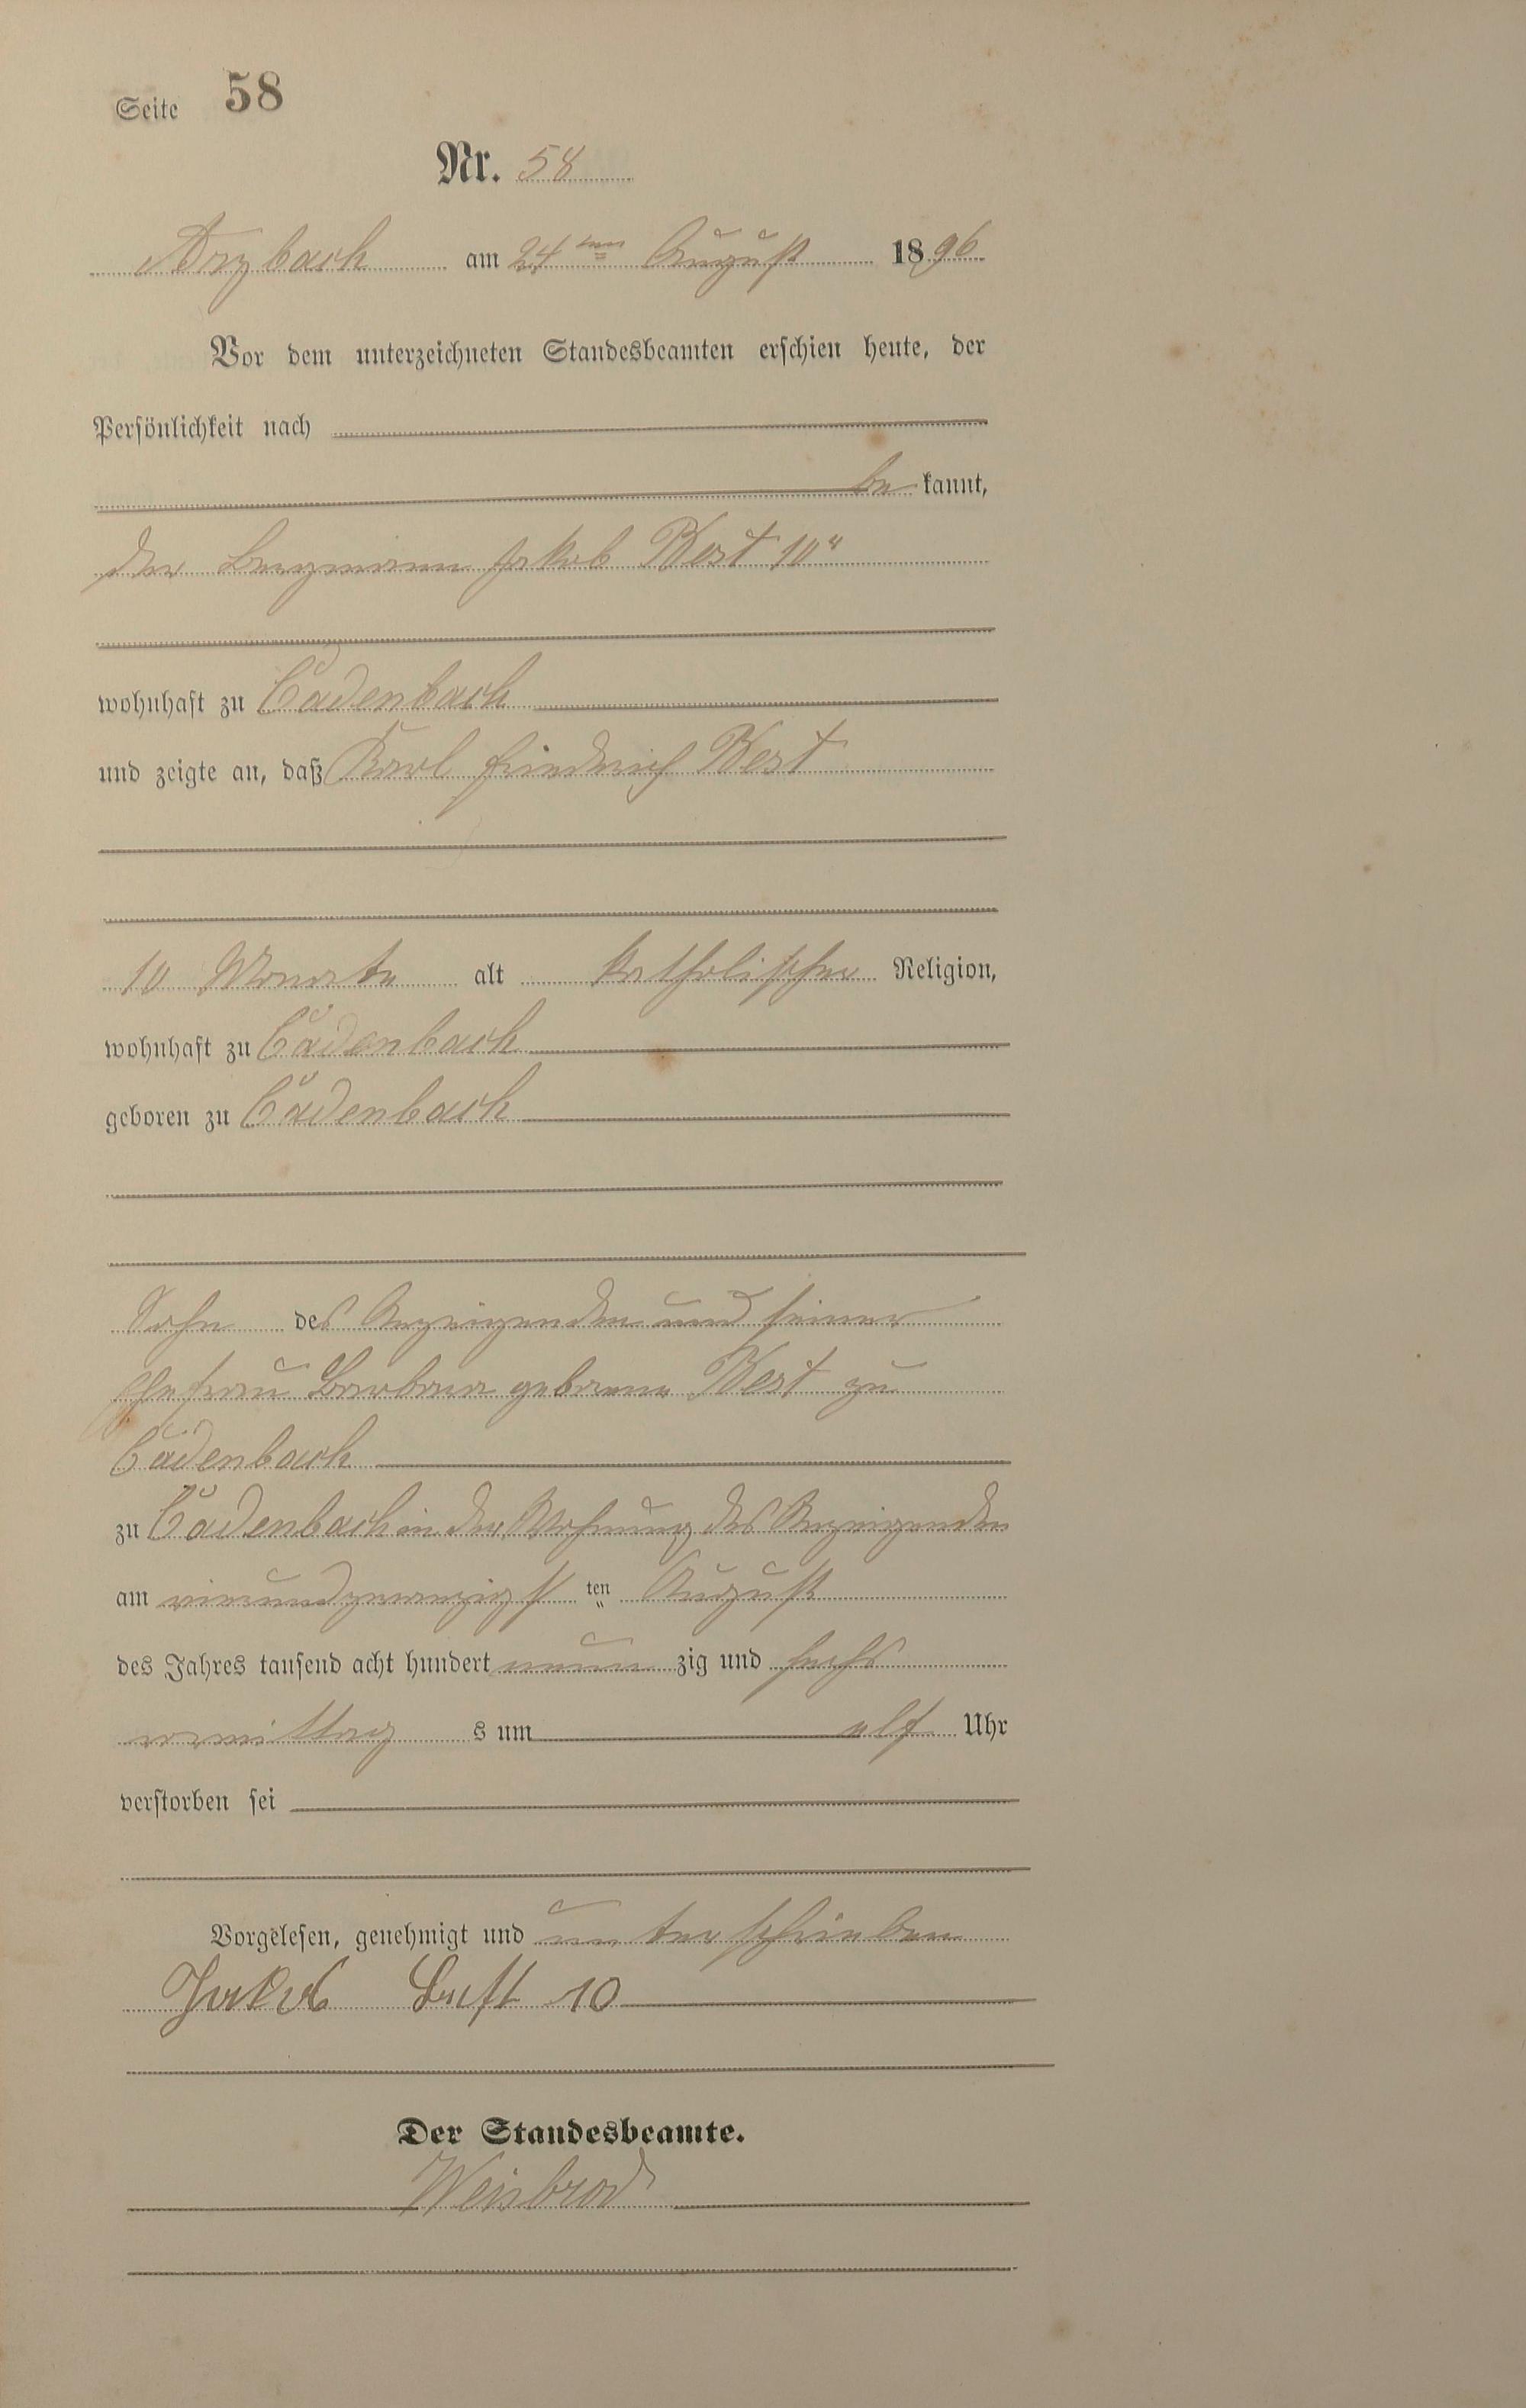 Seite 58
Nr. 58
Arzbach am 24ten August 1896
Vor dem unterzeichneten Standesbeamten erschien heute, der
Persönlichkeit nach
be kannt,
der Bergmann Jakob Best 10"
wohnhaft zu Cadenbach
und zeigte an, daß Karl Friedrich Best
10 Monate alt katholischer Religion,
wohnhaft zu Cadenbach
geboren zu Cadenbach
Sohn des Anzeigenden und seiner
Ehefrau Barbara geborene Best zu
Cadenbach
zu Cadenbach in der Wohnung des Anzeigenden
am vierundzwanzigst ten August
des Jahres tausend acht hundert neun zig und sechs
vormittag s um elf Uhr
verstorben sei
Vorgelesen, genehmigt und unterschrieben
Jakob Best 10
Der Standesbeamte.
Weisbrod